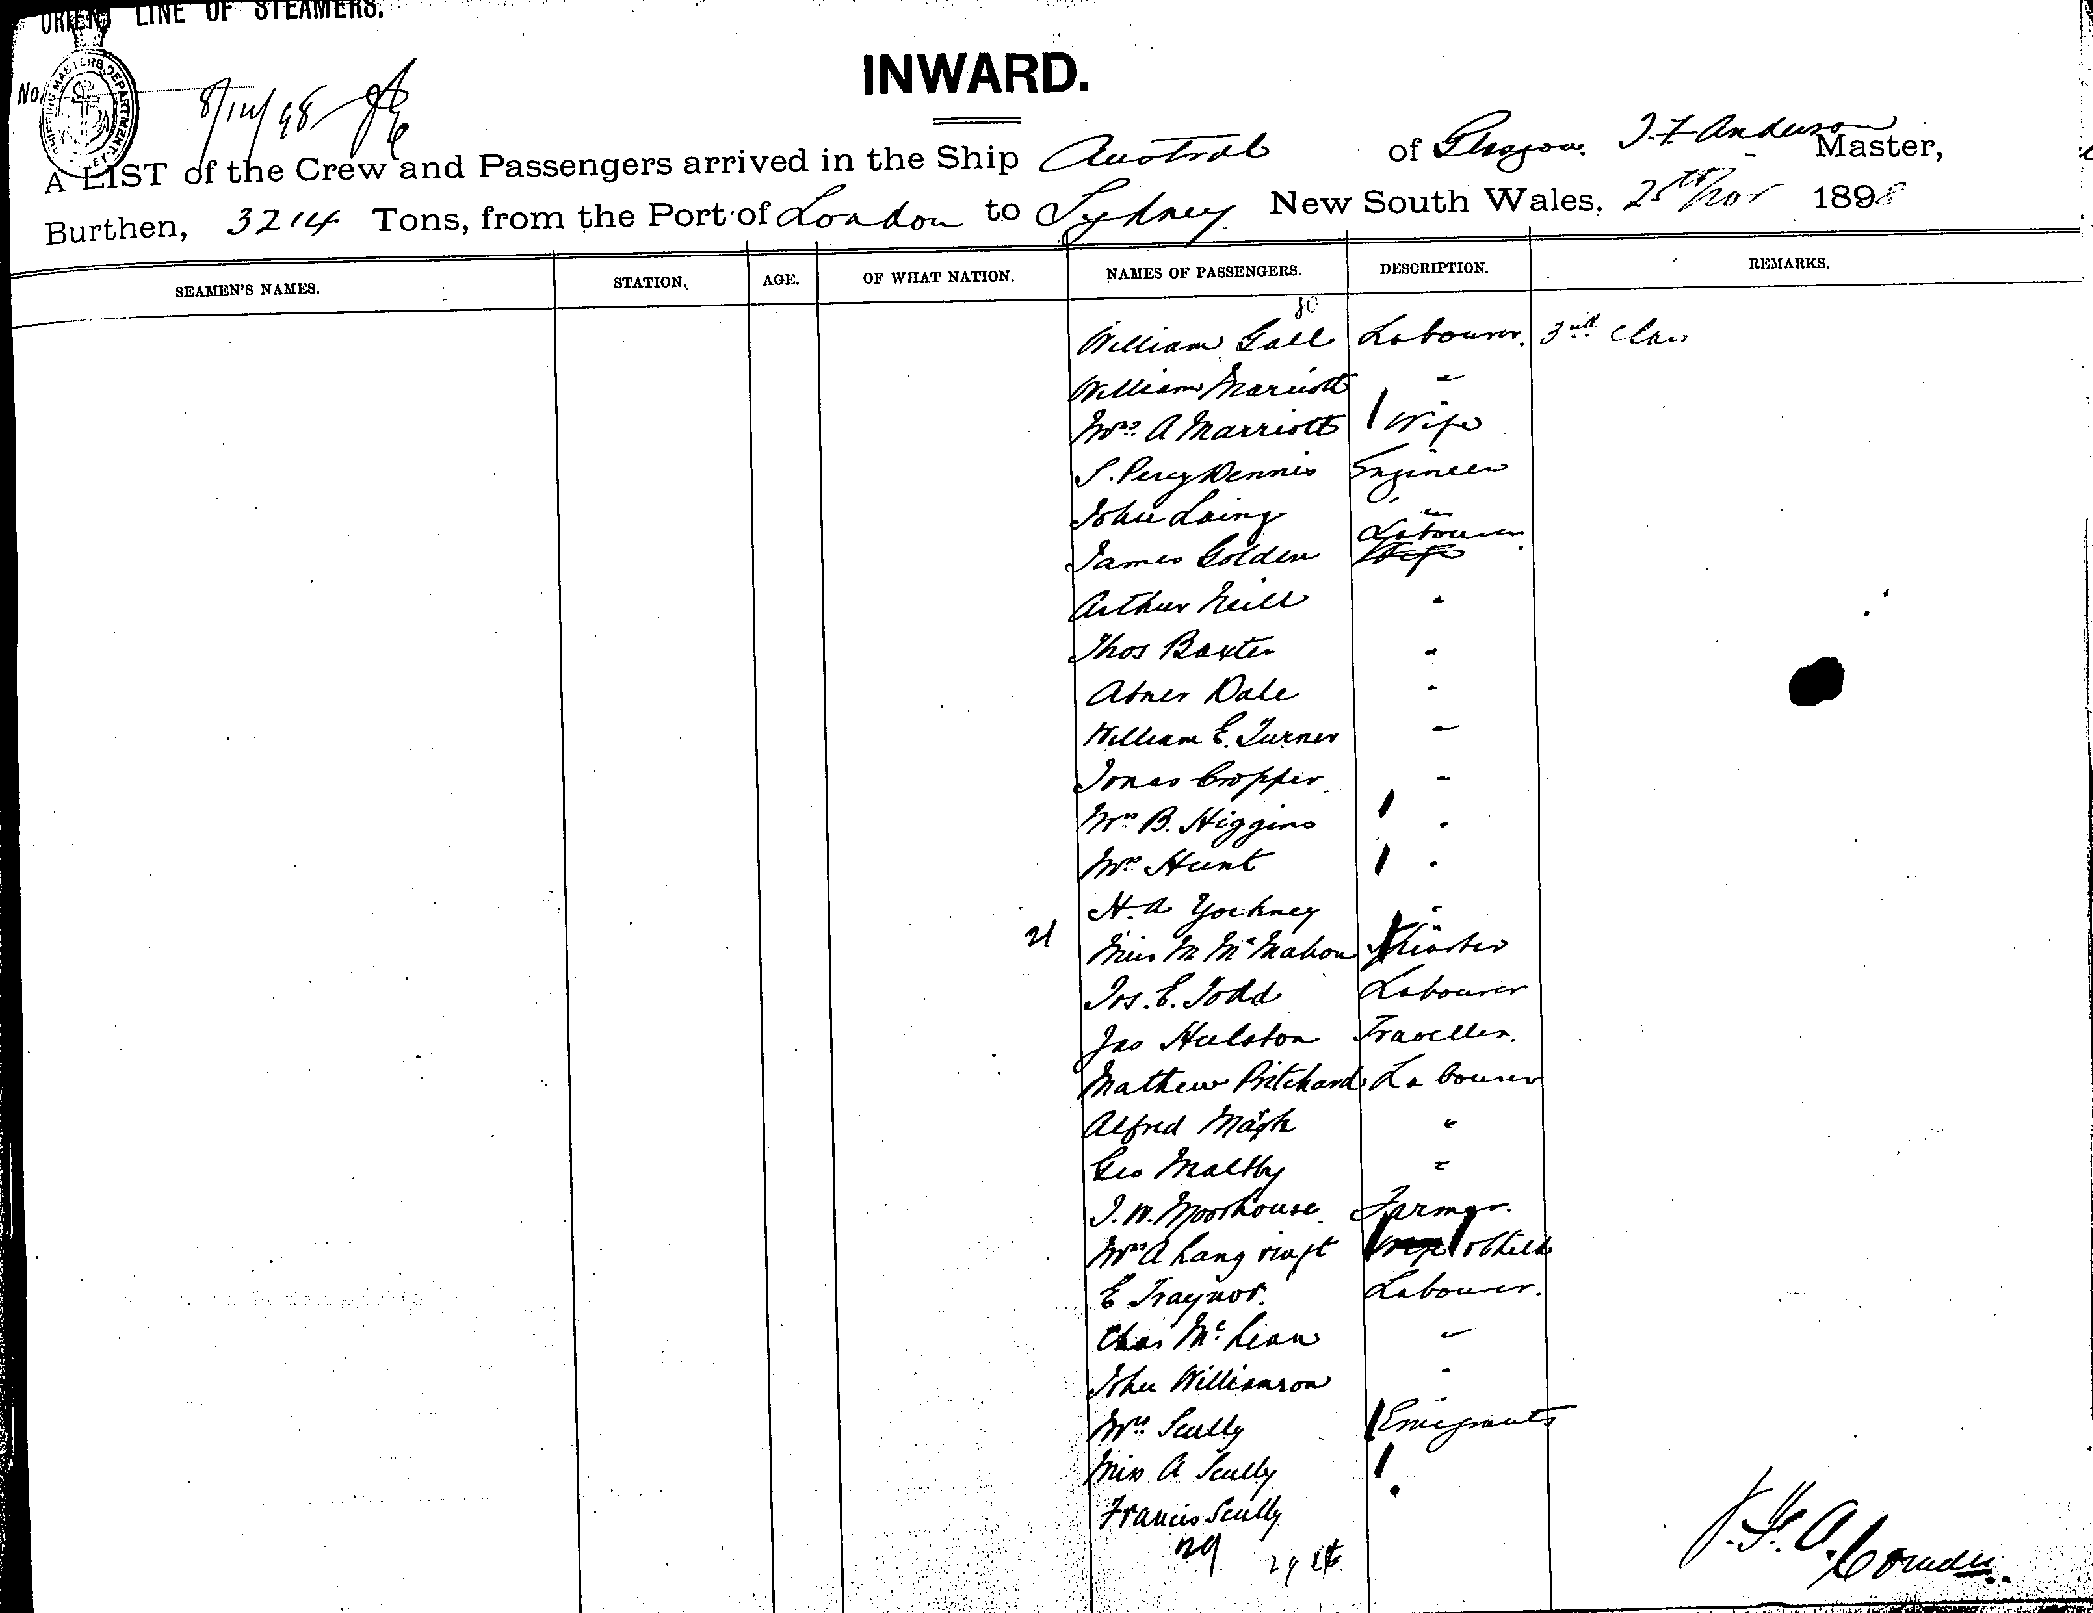 ORIENT LINE OF STEAMERS.
INWARD.
No.
SHIPPING MASTERS DEPARTMENT
A LIST of the Crew and Passengers arrived in the Ship Austral of Glasgow. J. F. Anderson Master,
Burthen, 3214 Tons, from the Port of London to Sydney. New South Wales, 25th Nov 1898
SEAMEN'S NAMES. STATION. AGE. OF WHAT NATION. NAMES OF PASSENGERS. DESCRIPTION. REMARKS.
William Gall Labourer. 3rd Class
William Marriott "
Mrs. A Marriott Wife
S. Percy Dennis Engineer
John Laing "
James Golden Labourer
Arthur Neill "
Thos Baxter "
Abner Dale "
William E. Turner "
Jonas Cropper "
Mrs B. Higgins "
Mrs Hunt "
H. A Yockney "
21
Miss M McMahon
Jos. E. Todd Labourer
Jas Hulston Traveller.
Mathew Pritchard Labourer
Alfred "
Geo Maltby "
J. W. Moorhouse Farmer.
Mrs A Langridge & Child
E Traynor. Labourer.
Chas McLean "
John Williamson "
Mrs Scully Emigrants
Miss A Scully
Francis Scully
29